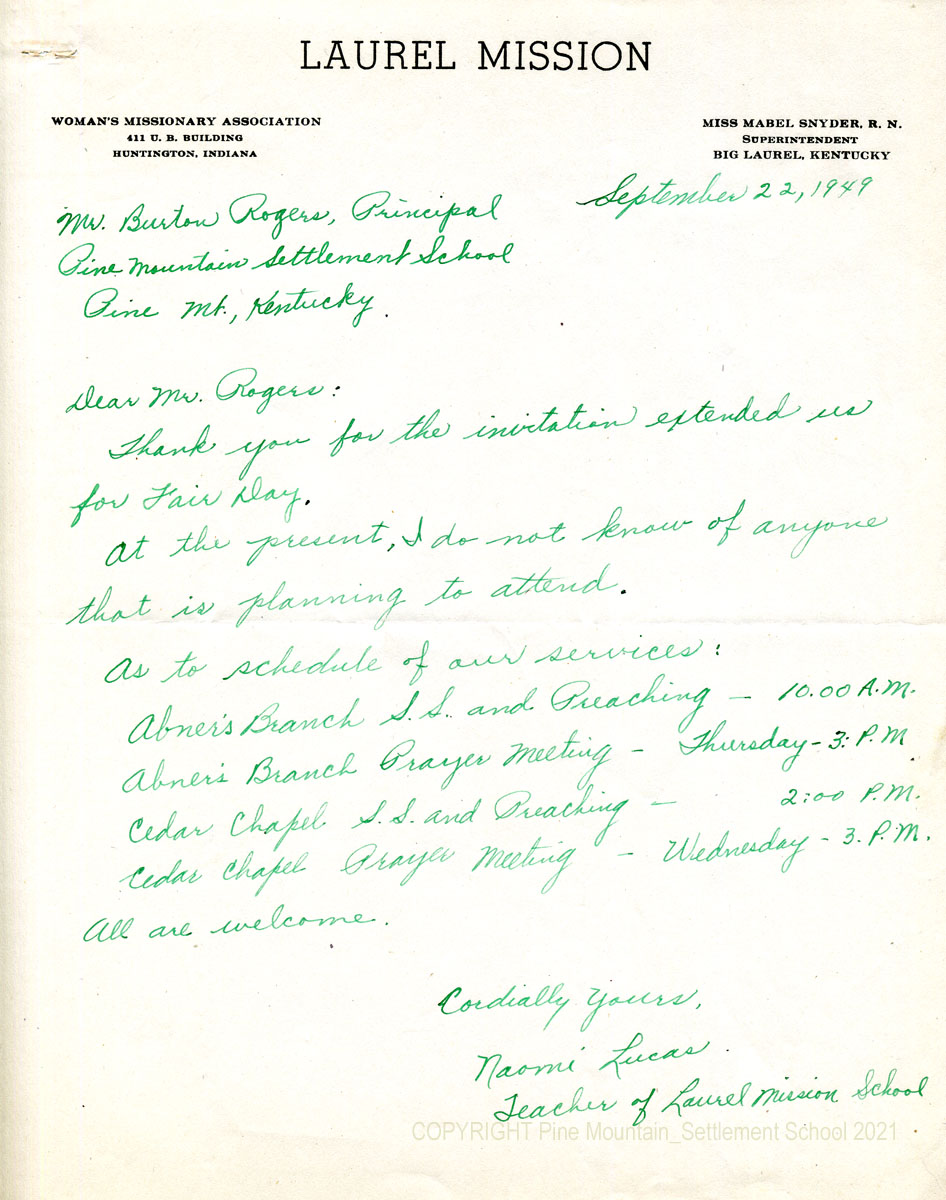 LAUREL MISSION
WOMAN'S MISSIONARY ASSOCIATION
411 U. B. BUILDING
HUNTINGTON, INDIANA
MISS MABEL SNYDER, R. N.
SUPERINTENDENT
BIG LAUREL, KENTUCKY
September 22, 1949
Mr. Burton Rogers, Principal
Pine Mountain Settlement School
Pine Mt., Kentucky.
Dear Mr. Rogers:
Thank you for the invitation extended us
for Fair Day.
At the present, I do not know of anyone
that is planning to attend.
As to schedule of our services:
Abner's Branch S.S. and Preaching — 10.00 A.M.
Abner's Branch Prayer Meeting — Thursday - 3: P.M.
Cedar Chapel S.S. and Preaching — 2:00 P.M.
Cedar Chapel Prayer Meeting — Wednesday - 3. P.M.
All are welcome.
Cordially Yours,
Naomi Lucas.
Teacher of Laurel Mission School
COPYRIGHT Pine Mountain_Settlement School 2021